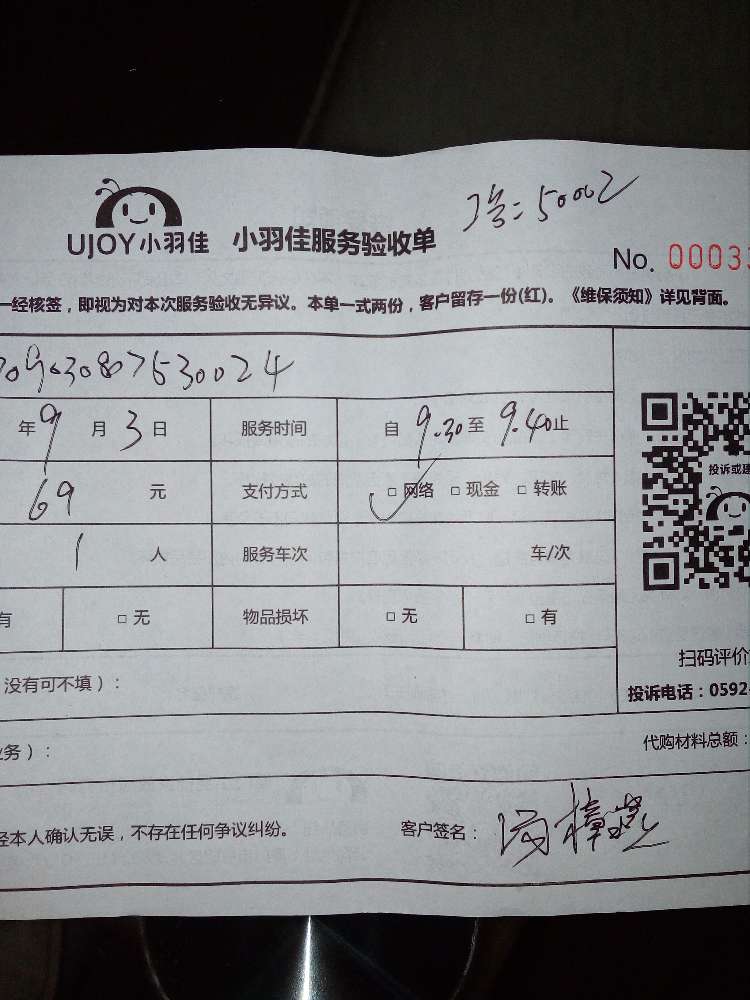 工号:50002
UJOY小羽佳 小羽佳服务验收单
No. 00033
一经核签，即视为对本次服务验收无异议。本单一式两份，客户留存一份(红)。《维保须知》详见背面。
年9月3日 服务时间 自9.30至9.40止
投诉或建
69元 支付方式 ✓□网络 □现金 □转账
1人 服务车次 车/次
有 □无 物品损坏 □无 □有
扫码评价
没有可不填）：
投诉电话：0592-
业务）：
代购材料总额：
经本人确认无误，不存在任何争议纠纷。 客户签名：